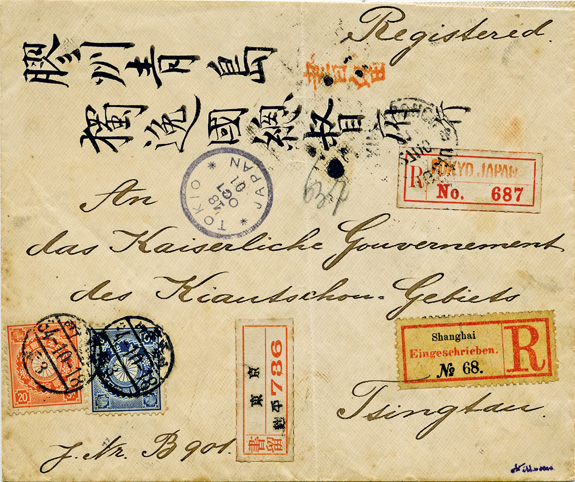 Registered.
膠州青島
獨逸國總督府
書留
TOKIO JAPAN
18
OCT
01
R TOKYO JAPAN
No. 687
An
das Kaiserliche Gouvernement
des Kiautschou-Gebiets
Tsingtau.
Shanghai
Eingeschrieben.
№ 68.
R
東京
786
20
J. Nr. B 901.